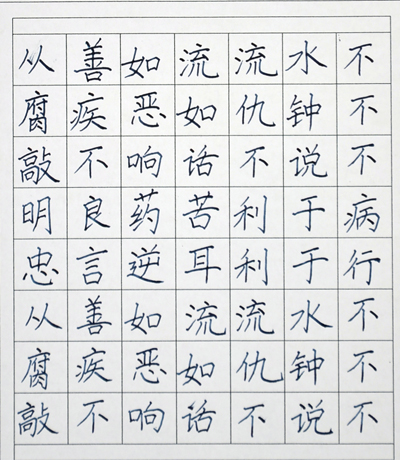 从善如流流水不
腐疾恶如仇钟不
敲不响话不说不
明良药苦利于病
忠言逆耳利于行
从善如流流水不
腐疾恶如仇钟不
敲不响话不说不